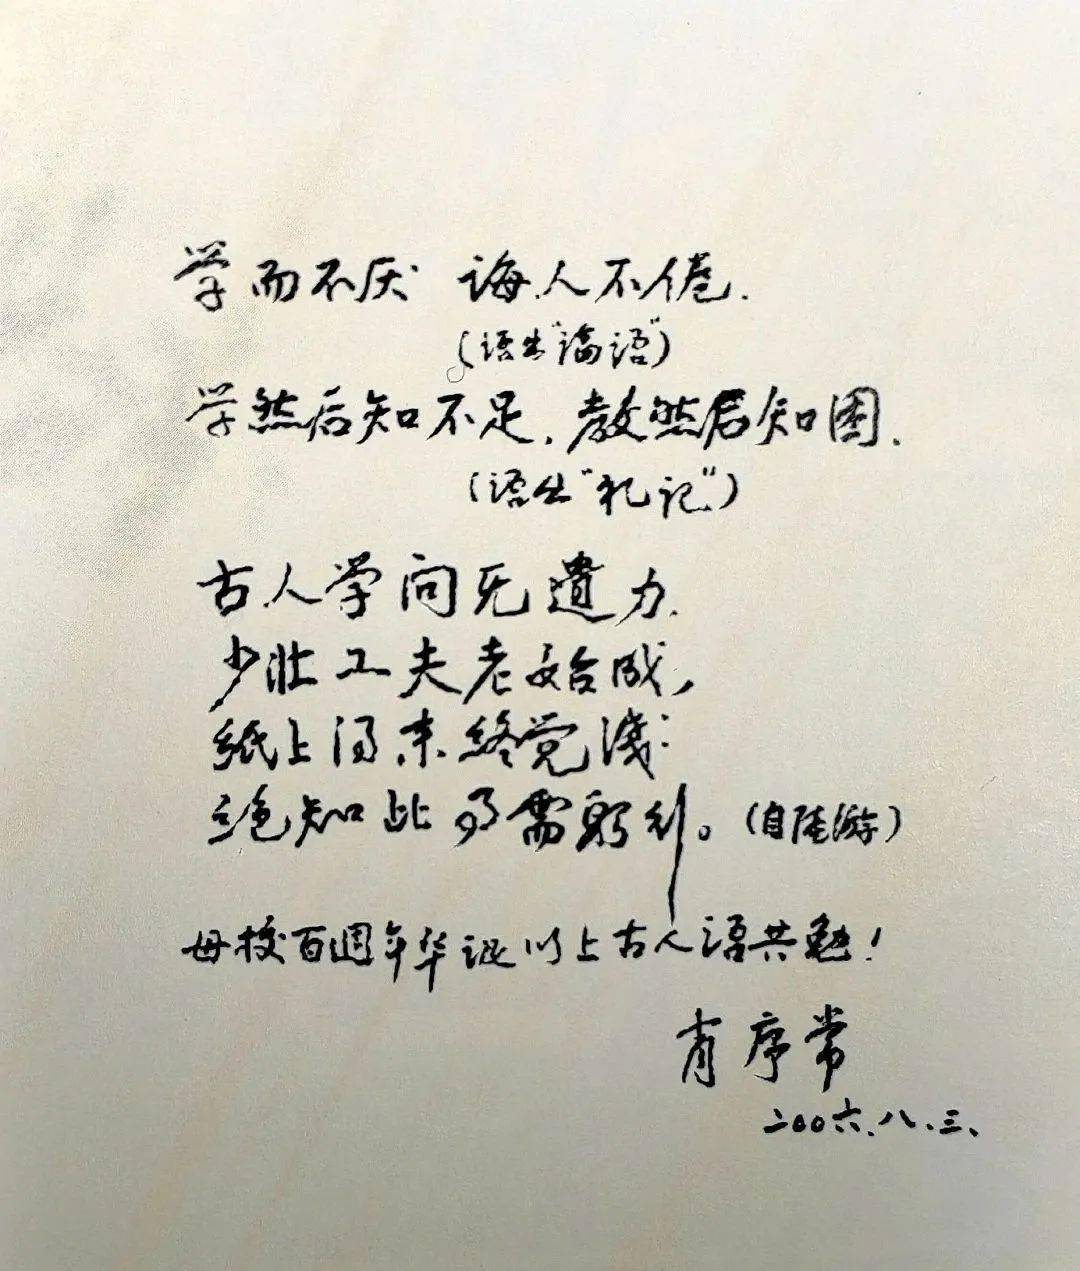 学而不厌 诲人不倦.
(语出"论语")
学然后知不足,教然后知困.
(语出"礼记")
古人学问无遗力.
少壮工夫老始成,
纸上得来终觉浅:
绝知此事需躬行。(自陆游)
母校百週年华诞以上古人语共勉!
肖序常
二00六.八.三.